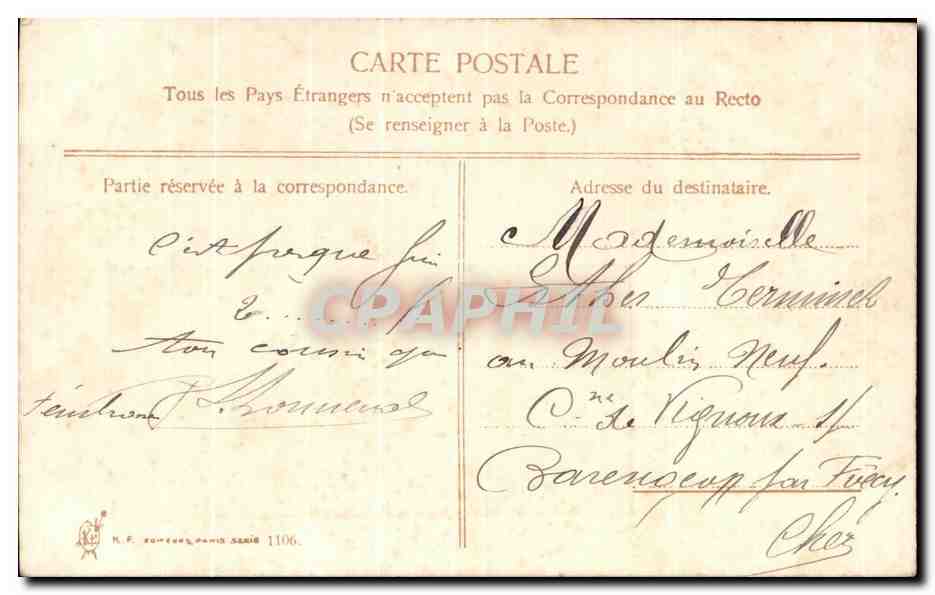 CARTE POSTALE
Tous les Pays Étrangers n'acceptent pas la Correspondance au Recto
(Se renseigner à la Poste.)
Partie réservée à la correspondance.
Adresse du destinataire.
c'est presque fini
2........
ton cousin qui
Mademoiselle
Esther
au Moulin Neuf.
Cne de Vignoux s/
Barengeon par Foëcy
Cher
CPAPHIL
K. F. EDITEURS, PARIS SERIE 1106.